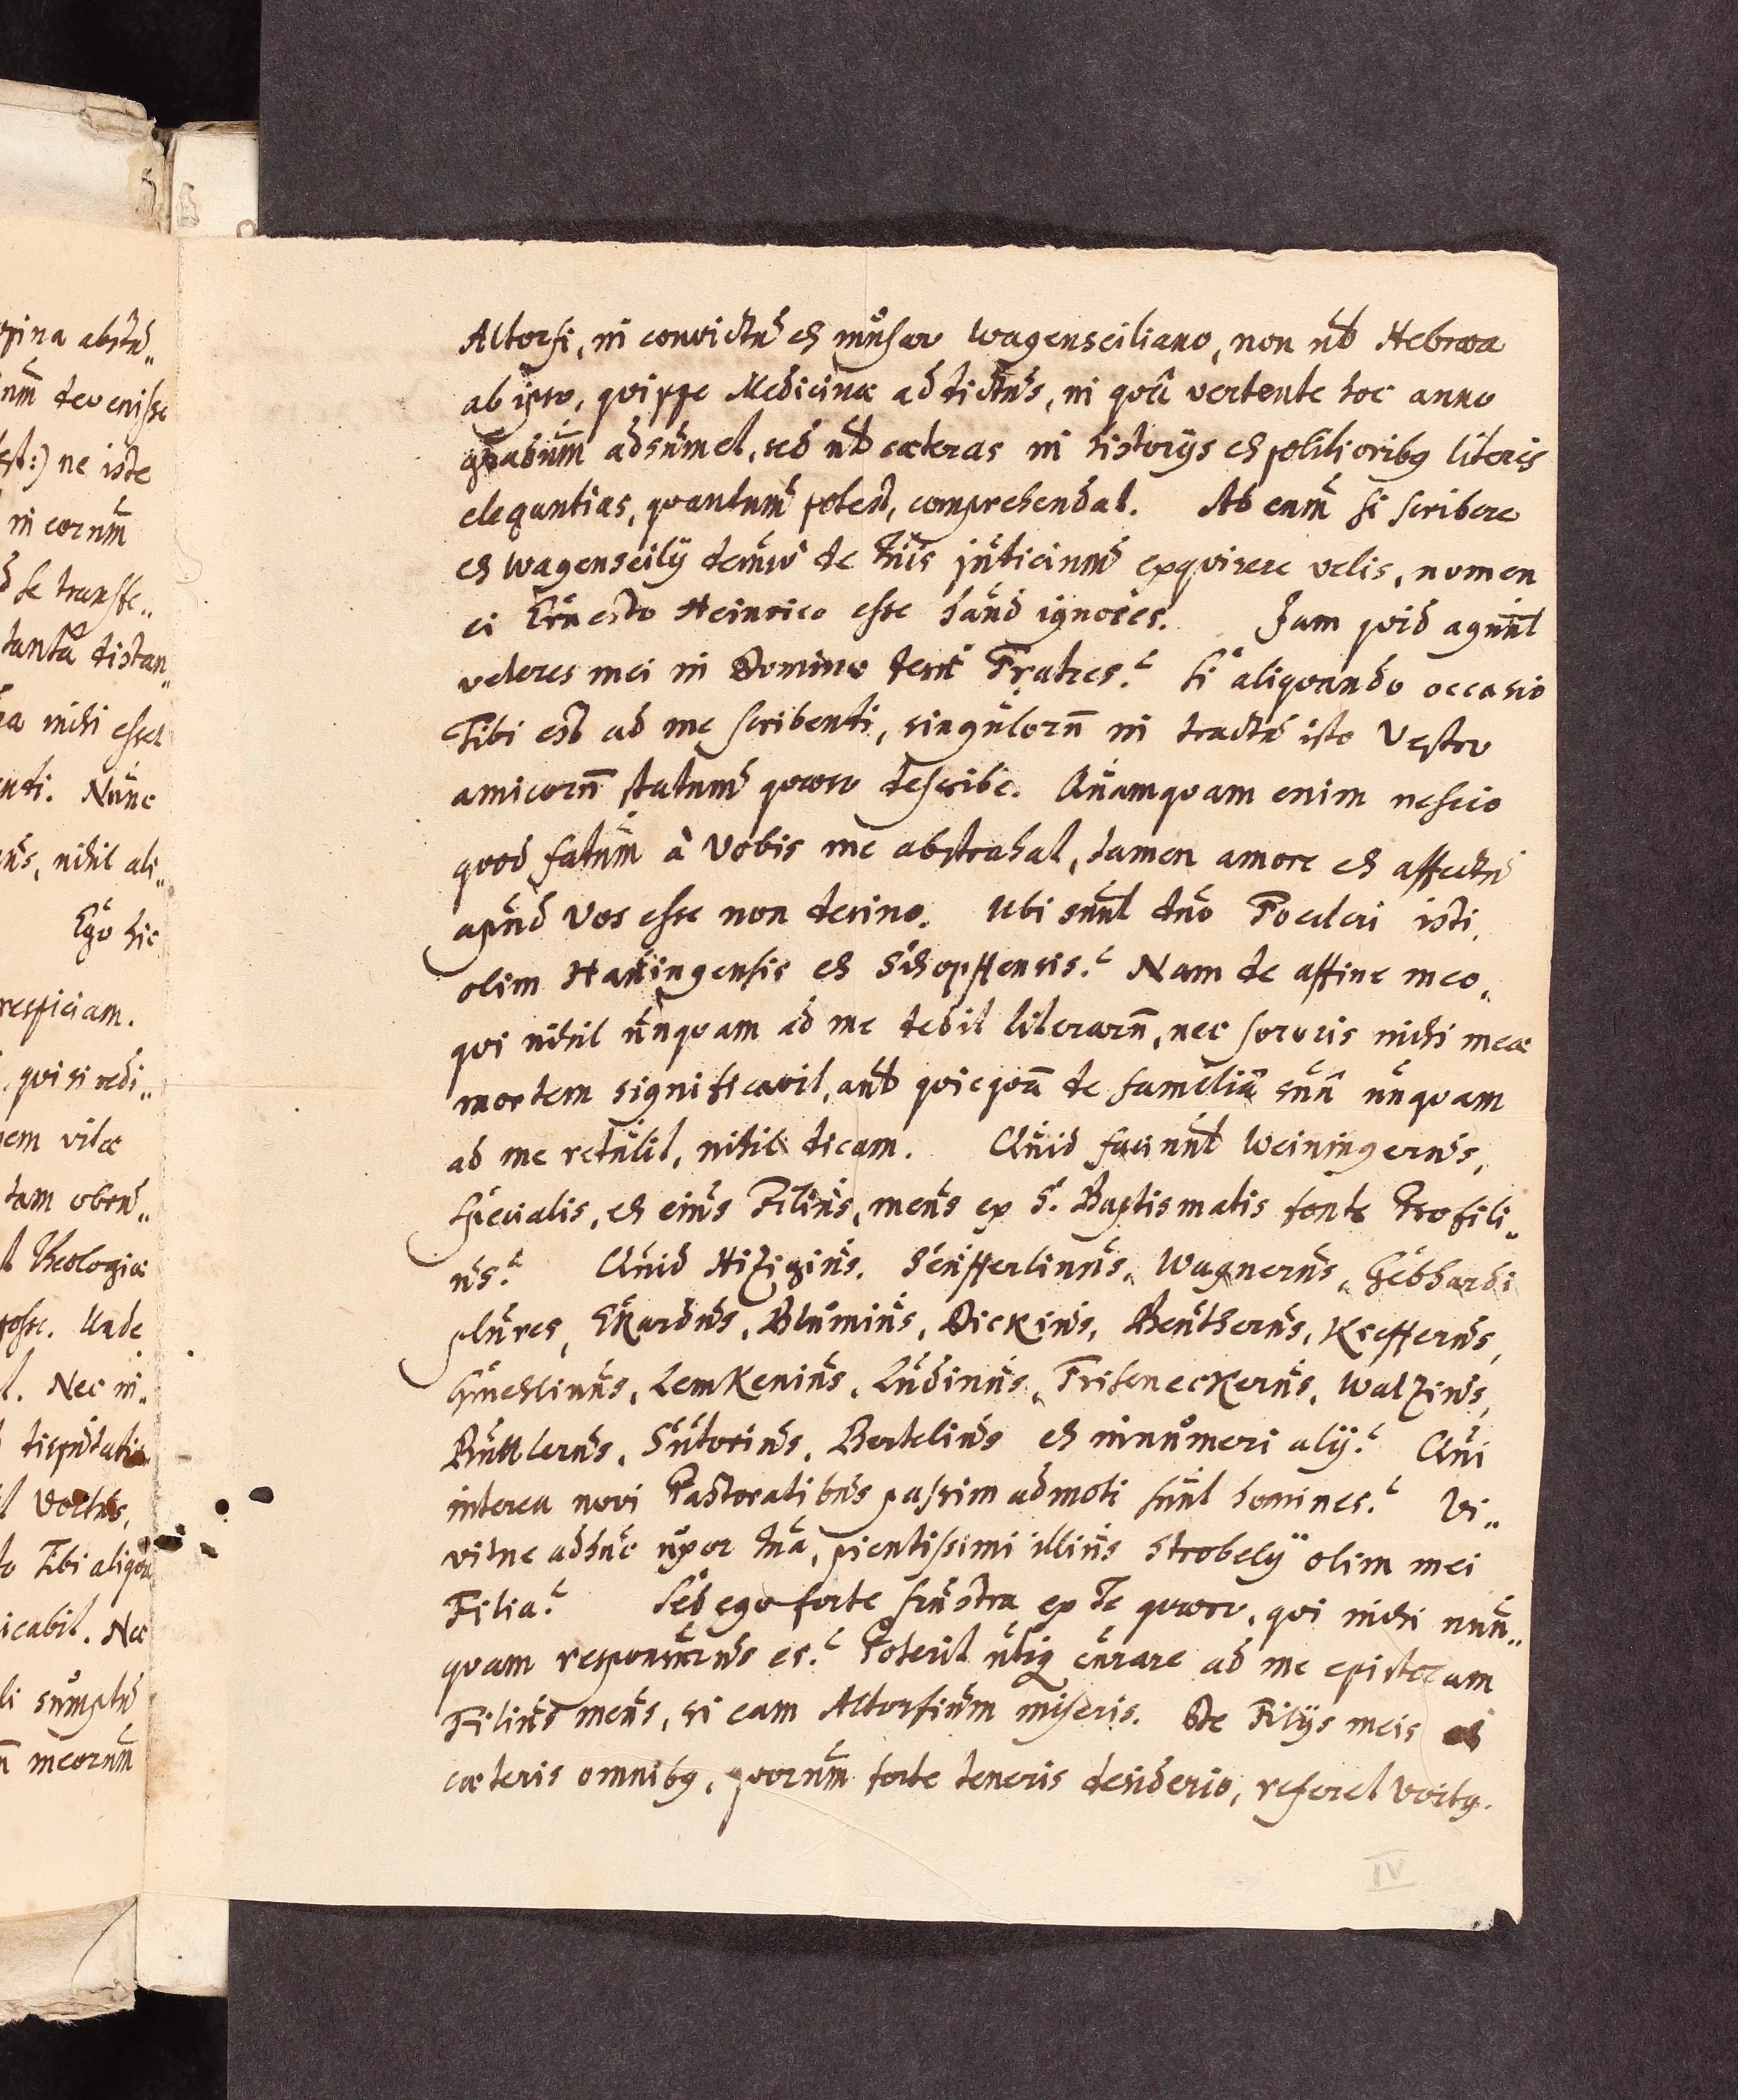 Altorfi, in convictu et musaeo Wagenseiliano, non ut Hebraea
ab ipso, quippe Medicinae addictus, in quâ vertente hoc anno
gradum adsumet, sed ut caeteras in historijs et politioribq literis
elegantias, quantum potest, comprehendat. Ad eum si scribere
et Wagenseilij denuo de Tuis judicium exquirere velis, nomen
ei Ernesto Heinrico esse haud ignores. Jam quid agunt
veteres mei in Domino Fratres? Si aliquando occasio
Tibi est ad me scribendi, singulorū in tractu isto Vestro
amicorū statum quaeso describe. Quamquam enim nescio
quod fatum à Vobis me abstrahat, tamen amore et affectu
apud Vos esse non desino. Ubi sunt duo Poederi isti,
olim Hattingensis et Schopffensis? Nam de affine meo,
qui nihil unquam ad me dedit literarū, nec sororis mihi meae
mortem significavit, aut quicquā de familiâ suâ unquam
ad me retulit, nihil dicam. Quid faciunt Weiningerus,
Specialis, et eius Filius, meus ex S. Baptismatis fonte Profili„
us? Quid Hizigius, Seufferlinus, Wagnerus, Gebhardi
plures, Ekardus, Blumius, Dickius, Beutherus, Kiefferus,
Gmehlinus, Lemkenius, Ludinus, Friseneckerus, Walzius,
Buttlerus, Sutorius, Bertelius et innumeri alij? Qui
interea novi Pastoratibus passim admoti sunt homines? Vi„
vitne adhuc uxor tua, pientissimi illius Strobelij olim mei
Filia? Sed ego forte frustra ex Te quaero, qui mihi nun„
quam responsurus es? Poterit utiq curare ad me epistolam
Filius meus, si eam Altorfium miseris. De Filijs meis et
caeteris omnibq, quorum forte teneris desiderio, referet Voitq.
IV